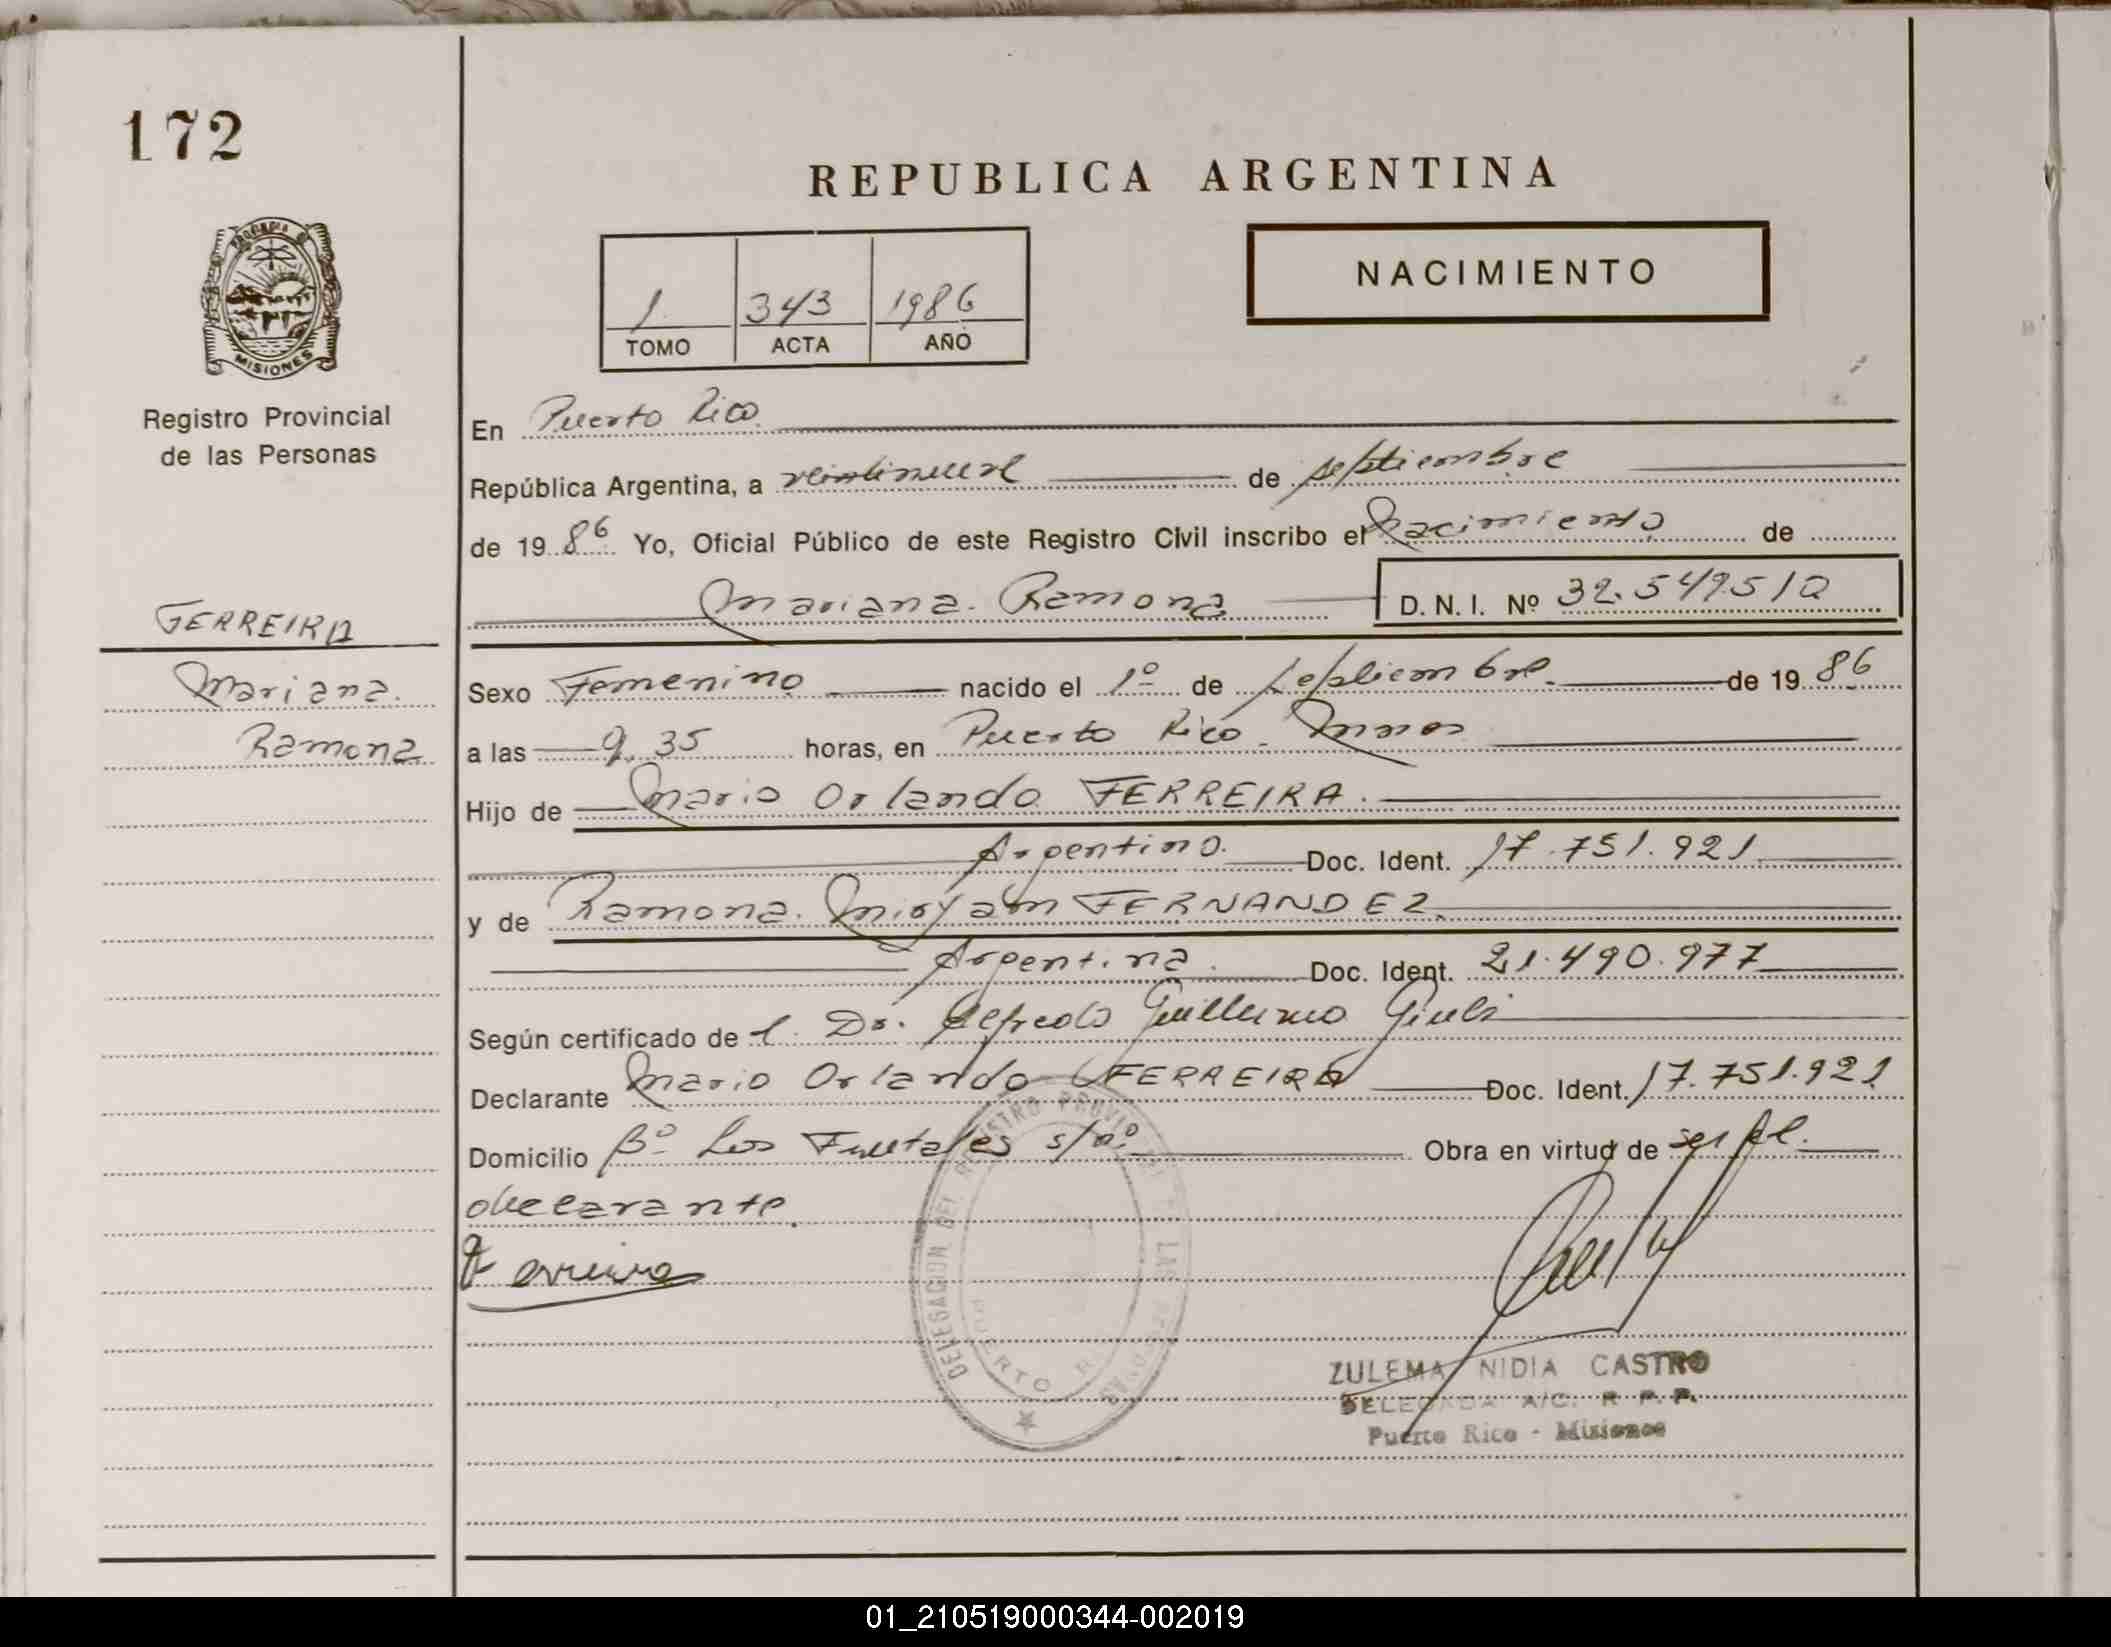 172
REPUBLICA ARGENTINA
NACIMIENTO
1 343 1986
TOMO ACTA AÑO
PROVINCIA DE
MISIONES
Registro Provincial
de las Personas
FERREIRA
Mariana
Ramona
En Puerto Rico
República Argentina, a veintinueve de septiembre
de 1986 Yo, Oficial Público de este Registro Civil inscribo el Nacimiento de
Mariana Ramona D.N.I. Nº 32.549.510
Sexo Femenino nacido el 1º de septiembre de 1986
a las 9,35 horas, en Puerto Rico - Mnes
Hijo de Mario Orlando FERREIRA
Argentino. Doc. Ident. 17.751.921
y de Ramona Miryam FERNANDEZ
Argentina. Doc. Ident. 21.490.977
Según certificado del Dr. Alfredo Guillermo
Declarante Mario Orlando FERREIRA Doc. Ident. 17.751.921
Domicilio Bº Los s/nº Obra en virtud de ser el
declarante.
Ferreira
DELEGACION DEL REGISTRO PROVINCIAL DE LAS PERSONAS
PUERTO RICO
ZULEMA NIDIA CASTRO
DELEGADA A/C. R.P.P.
Puerto Rico - Misiones
01_210519000344-002019